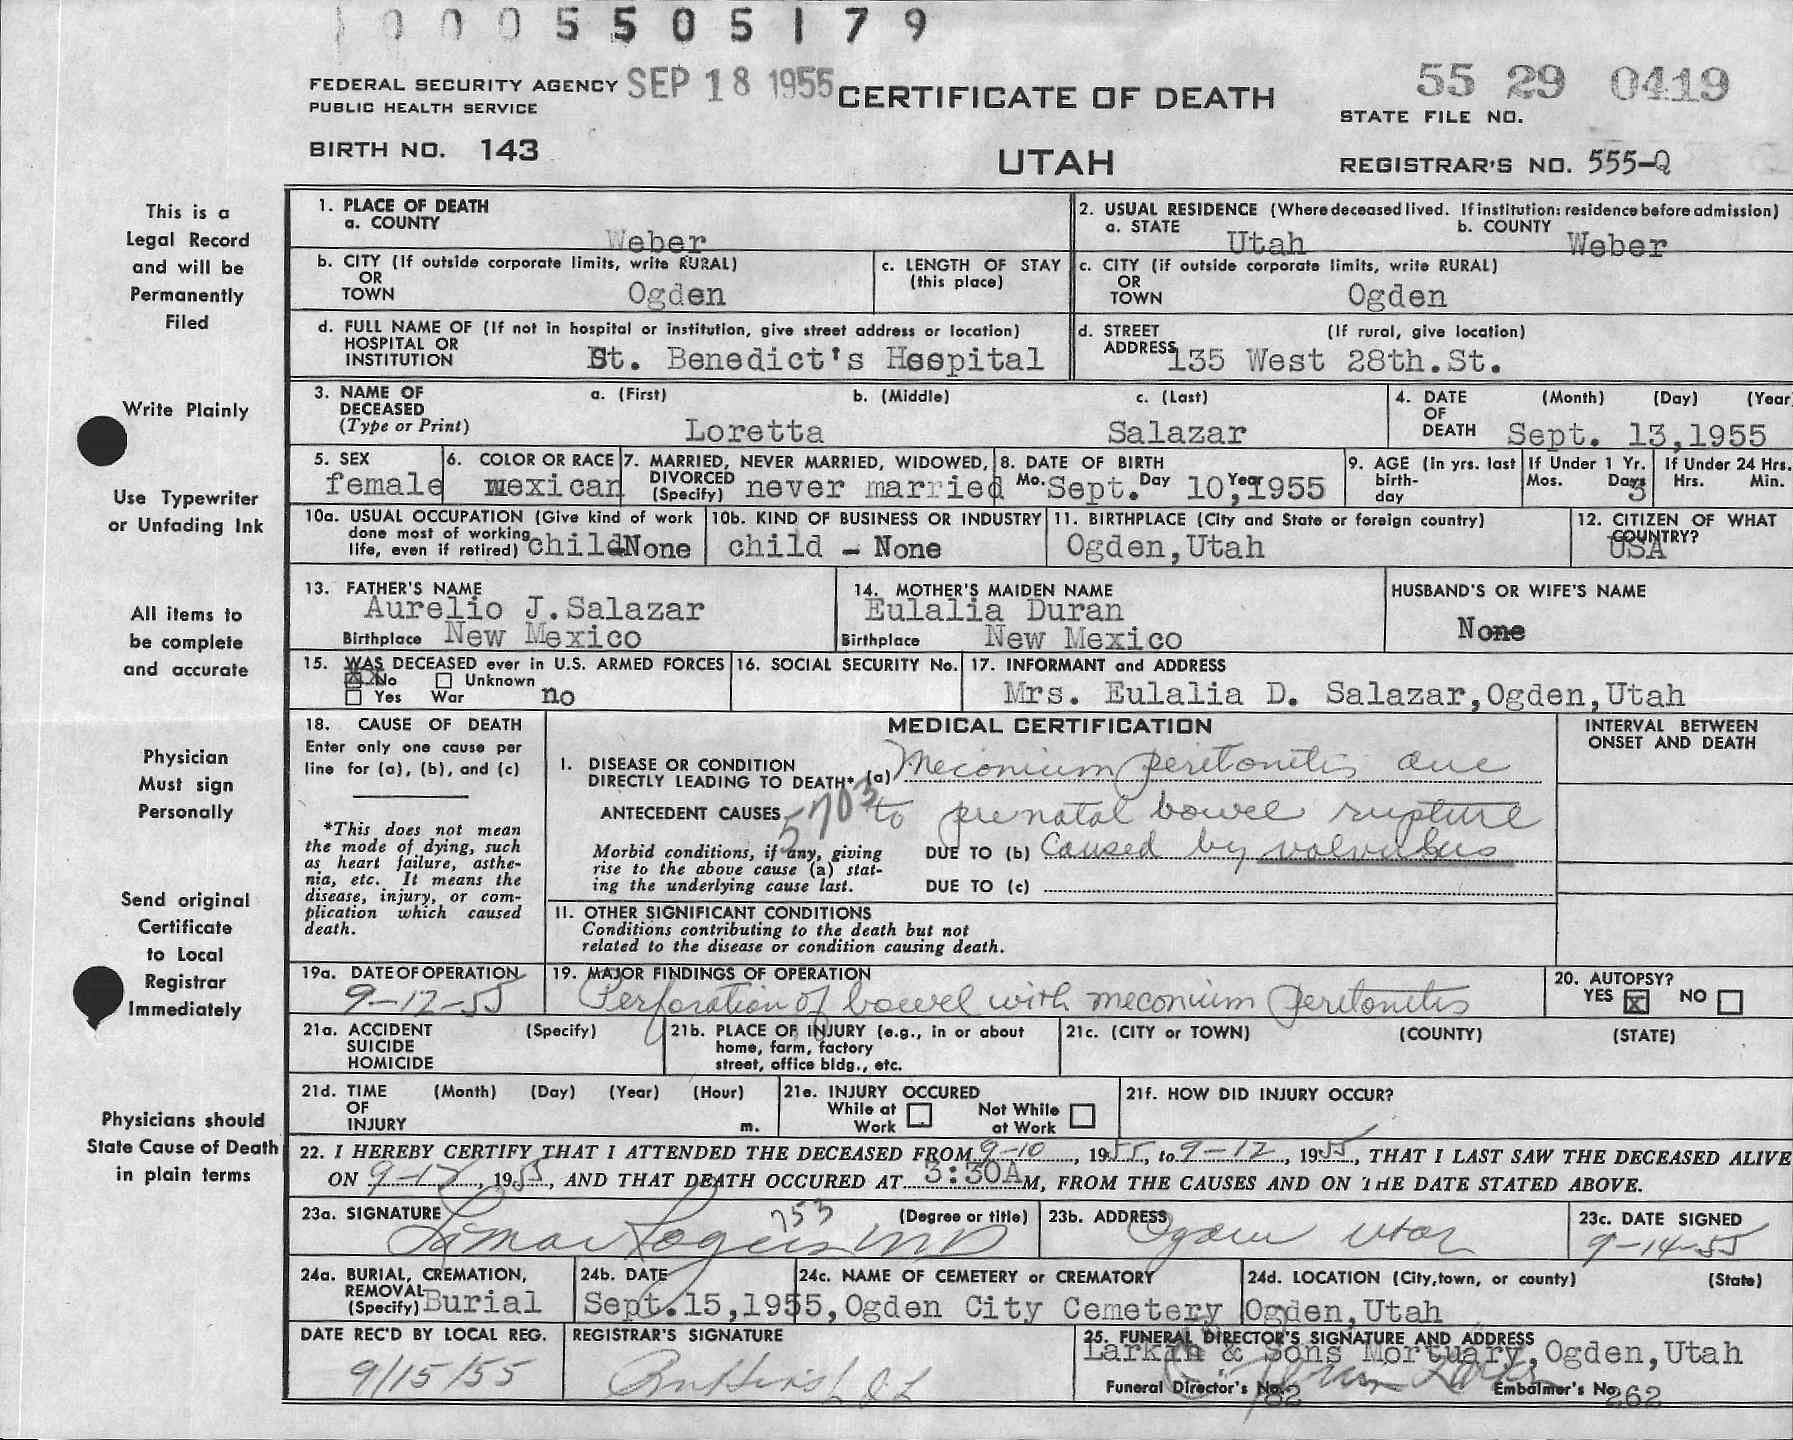 1 0 0 0 5 5 0 5 1 7 9
FEDERAL SECURITY AGENCY SEP 18 1955 CERTIFICATE OF DEATH 55 29 0419
PUBLIC HEALTH SERVICE STATE FILE NO.
BIRTH NO. 143 UTAH REGISTRAR'S NO. 555-Q
This is a Legal Record and will be Permanently Filed
Write Plainly
Use Typewriter or Unfading Ink
All items to be complete and accurate
Physician Must sign Personally
Send original Certificate to Local Registrar Immediately
Physicians should State Cause of Death in plain terms
1. PLACE OF DEATH
a. COUNTY Weber
2. USUAL RESIDENCE (Where deceased lived. If institution: residence before admission)
a. STATE Utah b. COUNTY Weber
b. CITY (If outside corporate limits, write RURAL) OR TOWN Ogden
c. LENGTH OF STAY (this place)
c. CITY (if outside corporate limits, write RURAL) OR TOWN Ogden
d. FULL NAME OF (If not in hospital or institution, give street address or location) HOSPITAL OR INSTITUTION St. Benedict's Hospital
d. STREET ADDRESS (If rural, give location) 135 West 28th.St.
3. NAME OF DECEASED (Type or Print) a. (First) b. (Middle) c. (Last)
Loretta Salazar
4. DATE OF DEATH (Month) (Day) (Year)
Sept. 13,1955
5. SEX female
6. COLOR OR RACE mexican
7. MARRIED, NEVER MARRIED, WIDOWED, DIVORCED (Specify) never married
8. DATE OF BIRTH Mo. Day Year Sept. 10,1955
9. AGE (In yrs. last birth-day
If Under 1 Yr. Mos. Days 3
If Under 24 Hrs. Hrs. Min.
10a. USUAL OCCUPATION (Give kind of work done most of working life, even if retired) child-None
10b. KIND OF BUSINESS OR INDUSTRY child - None
11. BIRTHPLACE (City and State or foreign country) Ogden,Utah
12. CITIZEN OF WHAT COUNTRY? USA
13. FATHER'S NAME Aurelio J.Salazar
Birthplace New Mexico
14. MOTHER'S MAIDEN NAME Eulalia Duran
Birthplace New Mexico
HUSBAND'S OR WIFE'S NAME None
15. WAS DECEASED ever in U.S. ARMED FORCES
No Unknown
Yes War no
16. SOCIAL SECURITY No.
17. INFORMANT and ADDRESS
Mrs. Eulalia D. Salazar,Ogden,Utah
18. CAUSE OF DEATH
Enter only one cause per line for (a), (b), and (c)
*This does not mean the mode of dying, such as heart failure, asthenia, etc. It means the disease, injury, or complication which caused death.
MEDICAL CERTIFICATION
INTERVAL BETWEEN ONSET AND DEATH
I. DISEASE OR CONDITION DIRECTLY LEADING TO DEATH* (a) Meconium peritonitis due
ANTECEDENT CAUSES 5703 to prenatal bowel rupture
Morbid conditions, if any, giving rise to the above cause (a) stating the underlying cause last.
DUE TO (b) Caused by volvulus
DUE TO (c)
II. OTHER SIGNIFICANT CONDITIONS
Conditions contributing to the death but not related to the disease or condition causing death.
19a. DATE OF OPERATION 9-12-55
19. MAJOR FINDINGS OF OPERATION
Perforation of bowel with meconium peritonitis
20. AUTOPSY?
YES X NO
21a. ACCIDENT SUICIDE HOMICIDE (Specify)
21b. PLACE OF INJURY (e.g., in or about home, farm, factory street, office bldg., etc.
21c. (CITY or TOWN) (COUNTY) (STATE)
21d. TIME OF INJURY (Month) (Day) (Year) (Hour) m.
21e. INJURY OCCURED While at Work Not While at Work
21f. HOW DID INJURY OCCUR?
22. I HEREBY CERTIFY THAT I ATTENDED THE DECEASED FROM 9-10, 1955, to 9-12, 1955, THAT I LAST SAW THE DECEASED ALIVE
ON 9-12, 1955, AND THAT DEATH OCCURED AT 3:30A M, FROM THE CAUSES AND ON THE DATE STATED ABOVE.
23a. SIGNATURE 753 (Degree or title)
Lamar Rogers MD
23b. ADDRESS Ogden Utah
23c. DATE SIGNED 9-14-55
24a. BURIAL, CREMATION, REMOVAL (Specify) Burial
24b. DATE Sept.15,1955,
24c. NAME OF CEMETERY or CREMATORY Ogden City Cemetery
24d. LOCATION (City,town, or county) (State) Ogden,Utah
DATE REC'D BY LOCAL REG. 9/15/55
REGISTRAR'S SIGNATURE
25. FUNERAL DIRECTOR'S SIGNATURE AND ADDRESS
Larkin & Sons Mortuary,Ogden,Utah
Funeral Director's No. 782 Embalmer's No. 262